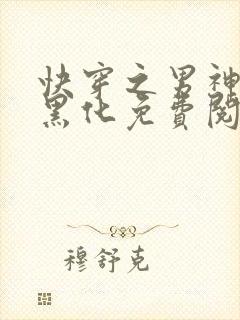 快穿之男神
黑化免費閱
穆舒克